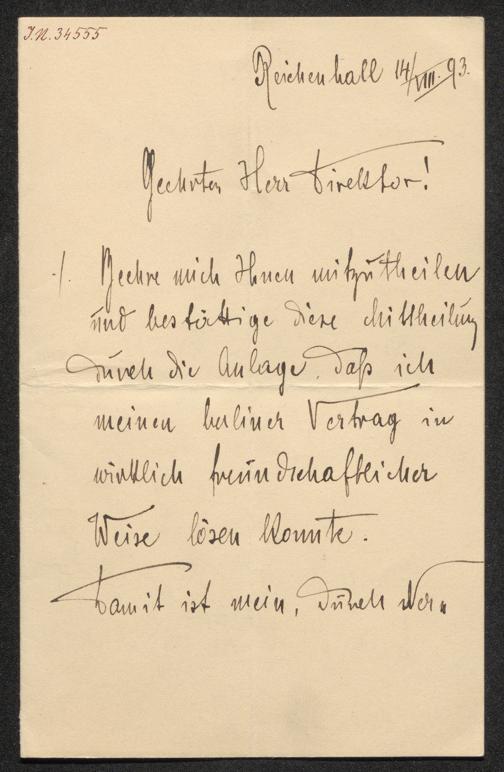 J.N. 34555
Reichenhall 14/VIII. 93.
Geehrter Herr Direktor!
./. Beehre mich Ihnen mitzutheilen
und bestättige diese Mittheilung
durch die Anlage, daß ich
meinen berliner Vertrag in
wirklich freundschaftlicher
Weise lösen konnte.
Damit ist mein, durch Ver„